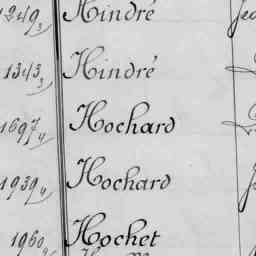 1249 3 Hindré
1343 3 Hindré
1697 4 Hochard
1939 4 Hochard
1960 Hochet